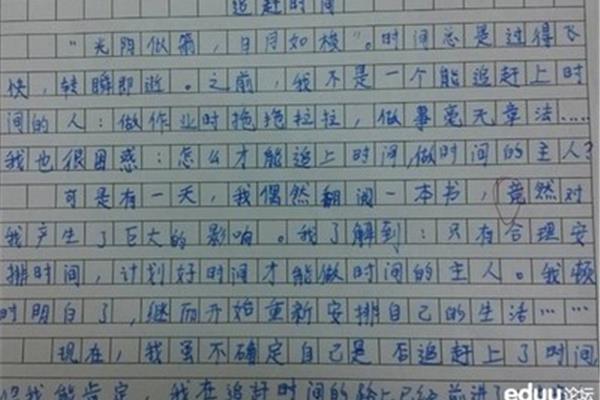 追赶时间
“光阴似箭，日月如梭”。时间总是过得飞
快，转瞬即逝。之前，我不是一个能追赶上时
间的人：做作业时拖拖拉拉，做事毫无章法……
我也很困惑：怎么才能追上时间,做时间的主人?
可是有一天，我偶然翻阅一本书，竟然对
我产生了巨大的影响。我了解到：只有合理安
排时间，计划好时间才能做时间的主人。我顿
时明白了，继而开始重新安排自己的生活……
现在，我虽不确定自己是否追赶上了时间,
但我能肯定，我在追赶时间的路上已经前进了
eduu论坛